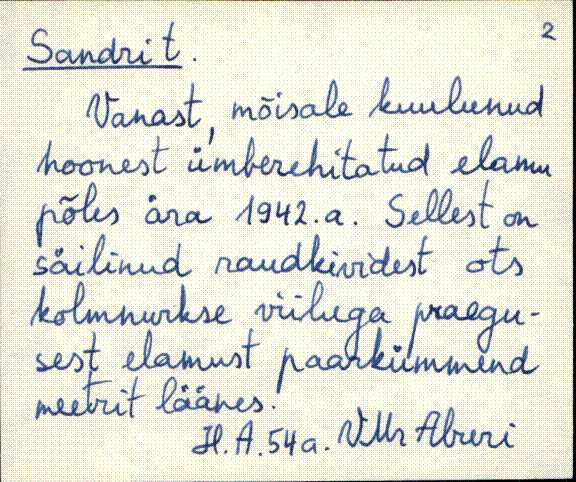 2
Sandri t.
Vanast, mõisale kuulunud
hoonest ümberehitatud elamu
põles ära 1942.a. Sellest on
säilinud raudkividest ots
kolmnurkse viiluga praegu-
sest elamust paarkümmend
meetrit läänes.
H.A. 54 a. VMr Abreri